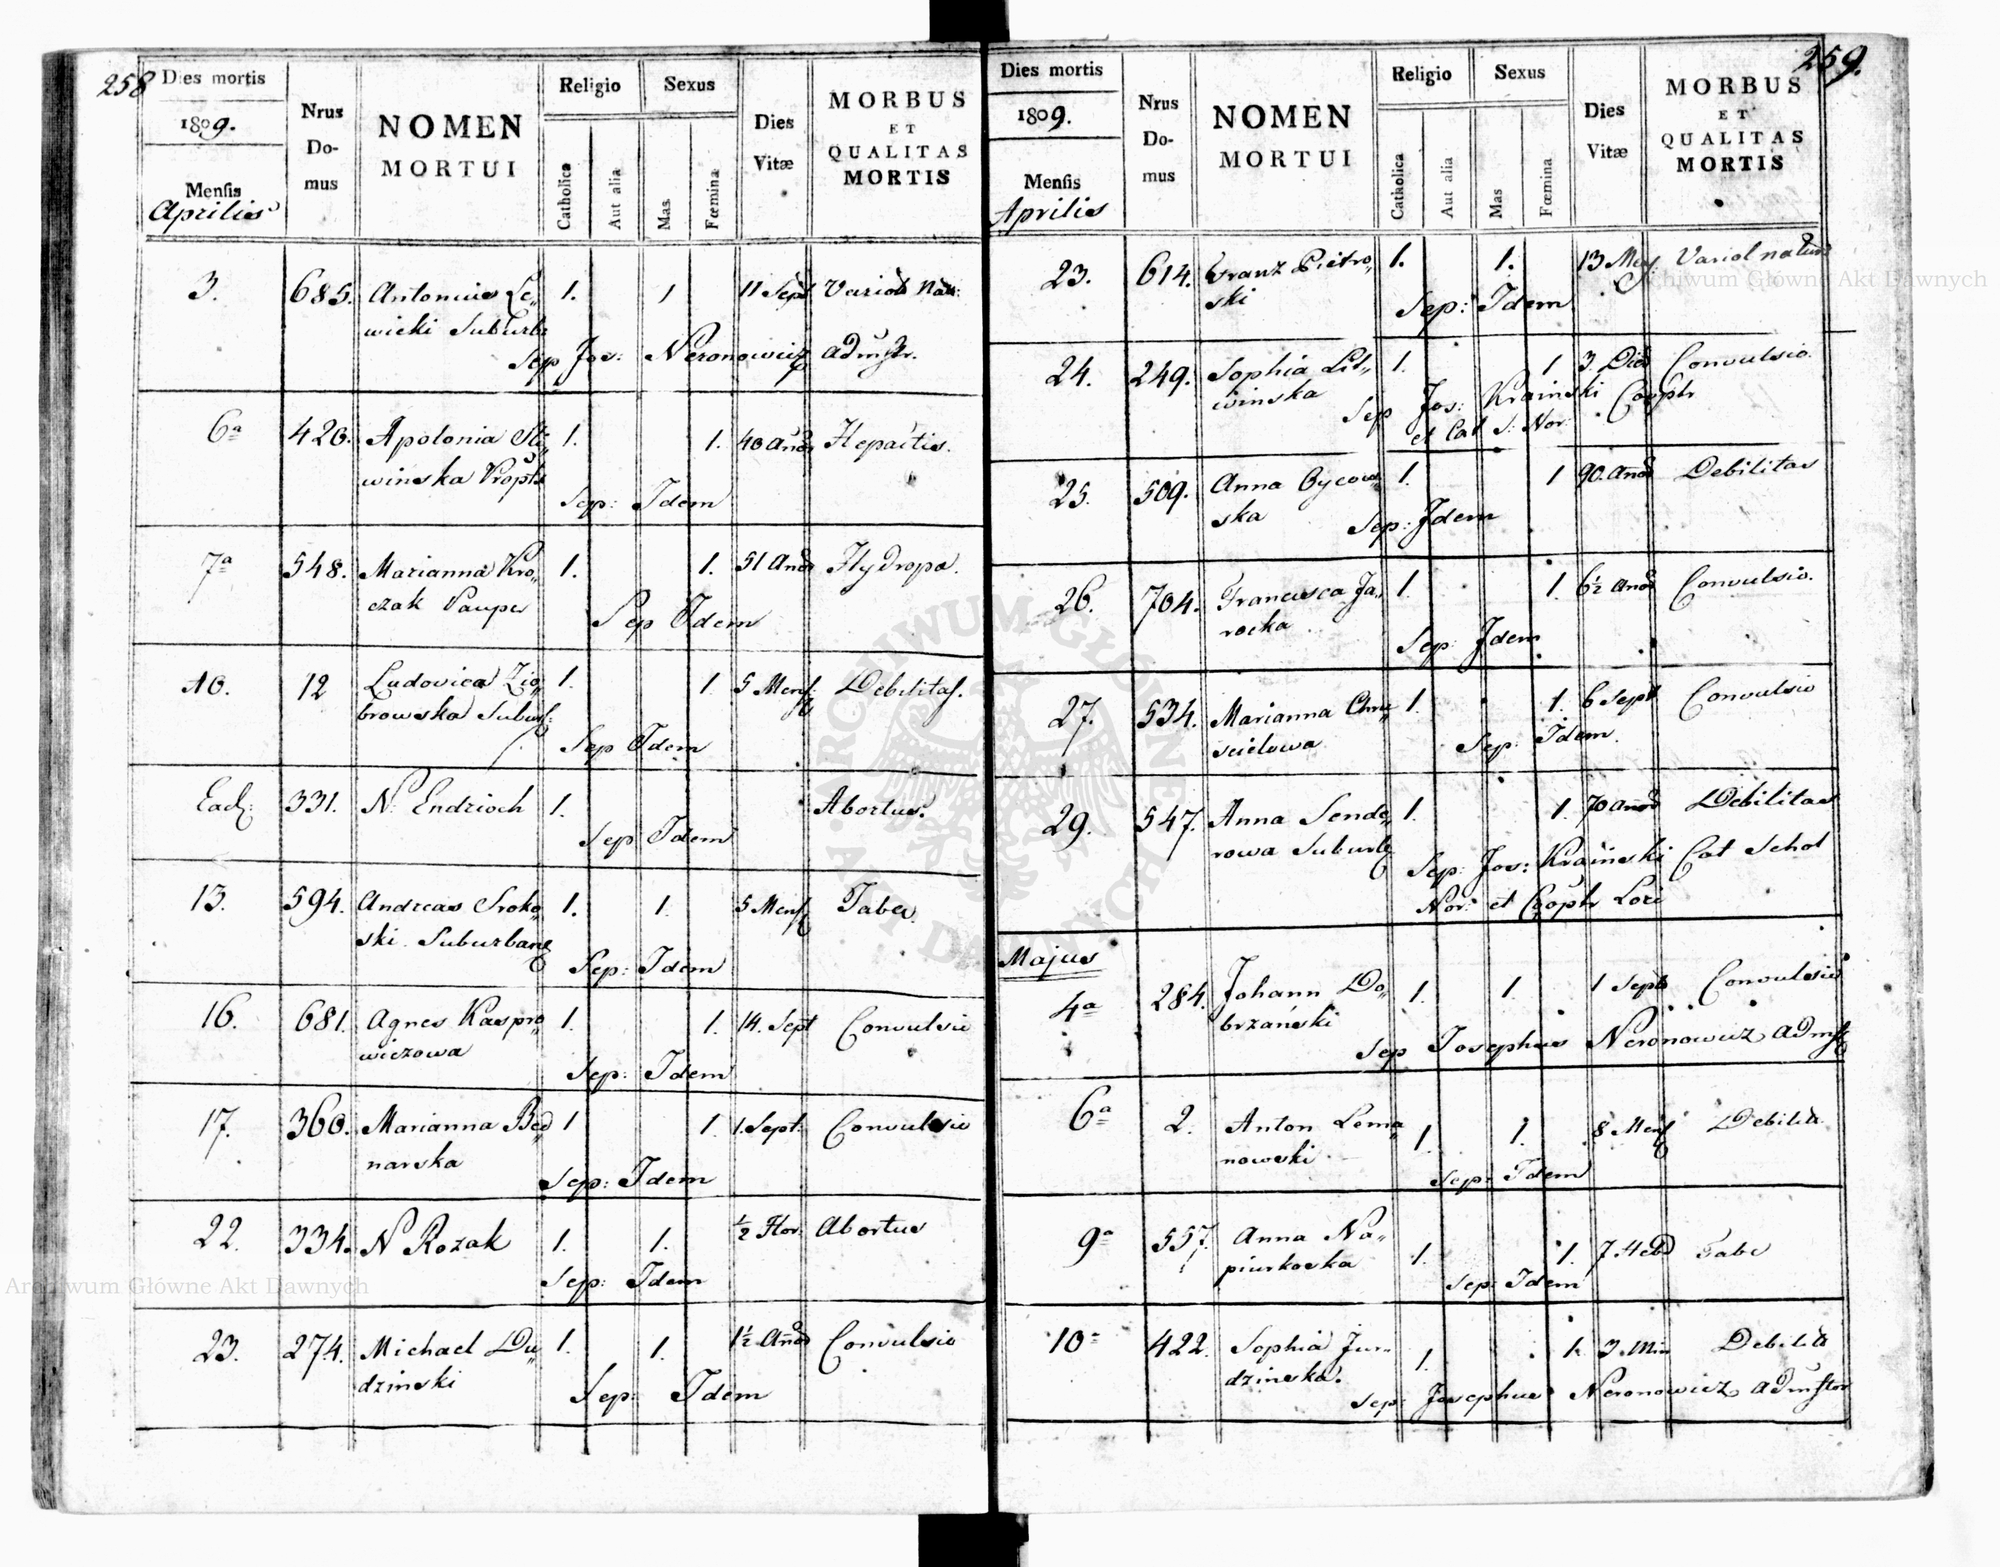 258
Dies mortis
1809.
Mensis
Aprilis
Nrus
Do-
mus
NOMEN
MORTUI
Religio
Catholica
Aut alia
Sexus
Mas.
Fœmina
Dies
Vitæ
MORBUS
ET
QUALITAS
MORTIS
3. 685. Antonius Le„ 1. 1 11 Sept Variol Nat:
wicki Suburb
Sep Jos: Neronowicz Admstr.
6ª 420. Apolonia Sli„ 1. 1. 40 Annor Hepaitis.
winska
Sep: Idem
7ª 548. Marianna Kro„ 1. 1. 51 Annor Hydropa.
czak Pauper
Sep Idem
10. 12 Ludovica Zio„ 1. 1. 5 Mens. Debilitas.
browska Suburb:
Sep Idem
Ead: 331. N. Endrioch 1. Abortus.
Sep Idem
13. 594. Andreas Sroko„ 1. 1. 5 Mens Tabes.
ski Suburbane
Sep: Idem
16. 681. Agnes Kaspro„ 1. 1. 14. Sept Convulsio
wiczowa
Sep: Idem
17. 360. Marianna Bed„ 1 1. 1. Sept: Convulsio
narska
Sep: Idem
22. 334. N Rozak 1. 1. ½ Hor: Abortus
Sep: Idem
23. 274. Michael Du„ 1. 1. 1½ Annor Convulsio
dzinski
Sep: Idem
259.
Dies mortis
1809.
Mensis
Aprilis
Nrus
Do-
mus
NOMEN
MORTUI
Religio
Catholica
Aut alia
Sexus
Mas
Fœmina
Dies
Vitæ
MORBUS
ET
QUALITAS
MORTIS
23. 614. Franz Pietro„ 1. 1. 13 Mens. Variol natur
ski
Sep: Idem
24. 249. Sophia Lit„ 1. 1 3. Dier Convulsio.
winska
Sep Jos: Krainski Cooptr
et Cat S: Nor:
25. 509. Anna Bycow„ 1. 1 90. Annor Debilitas
ska
Sep: Idem
26. 704. Francisca Ja„ 1. 1. 6½ Annor Convulsio.
rocka
Sep: Idem
27. 534. Marianna Chru„ 1. 1. 6 Sept Convulsio
scielowa
Sep: Idem.
29. 547. Anna Sende„ 1. 1. 70 Annor Debilitas
rowa Suburb
Sep: Jos: Kraiński Cat Schol
Nor: et Cooptr Loci
Majus
4ª 284. Johann Do„ 1. 1. 1 Sept Convulsio
brzański
Sep Josephus Neronowicz Admstr
6ª 2. Anton Lema„ 1. 1. 8 Mens Debilit
nowski
Sep: Idem
9ª 557. Anna Na„ 1. 1. 7. Hebd Tabe
piurkoska
Sep: Idem
10ª 422. Sophia Jun„ 1. 1. 3 Min Debilit
dzinska.
Sep: Josephus Neronowicz Admstor
Archiwum Główne Akt Dawnych
Archiwum Główne Akt Dawnych
ARCHIWUM GŁÓWNE AKT DAWNYCH